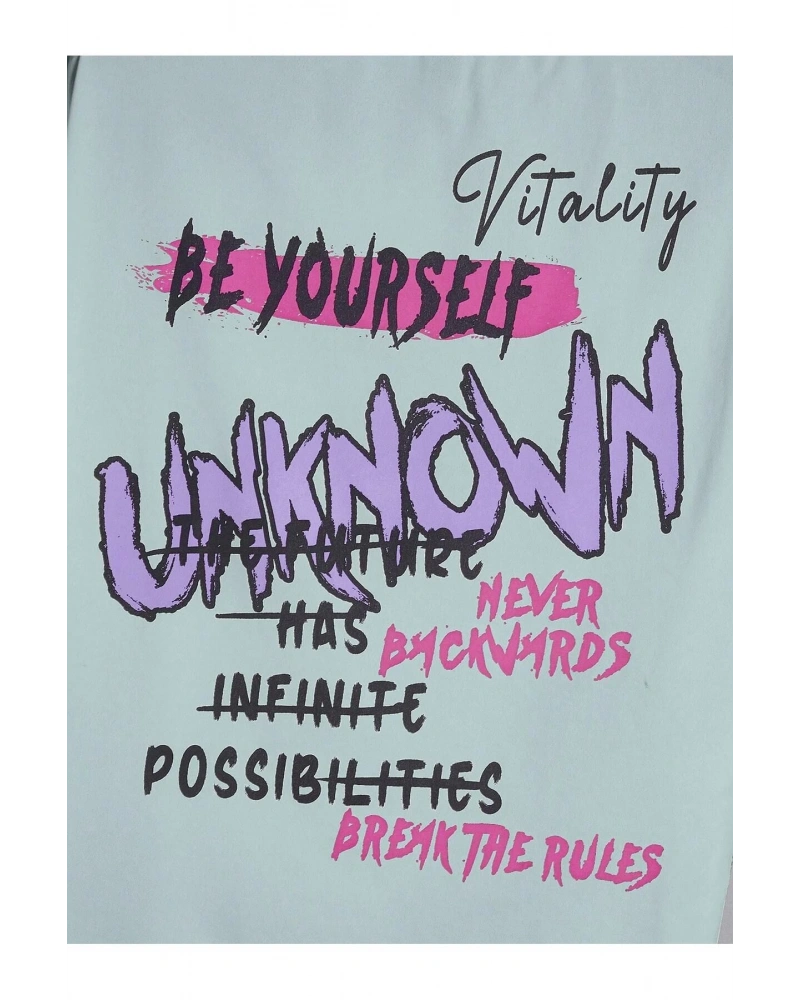 Vitality
BE YOURSELF
UNKNOWN
THE FUTURE
HAS
NEVER
BACKWARDS
INFINITE
POSSIBILITIES
BREAK THE RULES